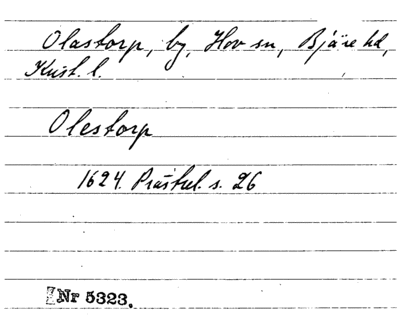 Olastorp, by, Hov sn, Bjäre hd,
Krist. l.
Olestorp
1624. Prästrel. s. 26
Nr 5323.